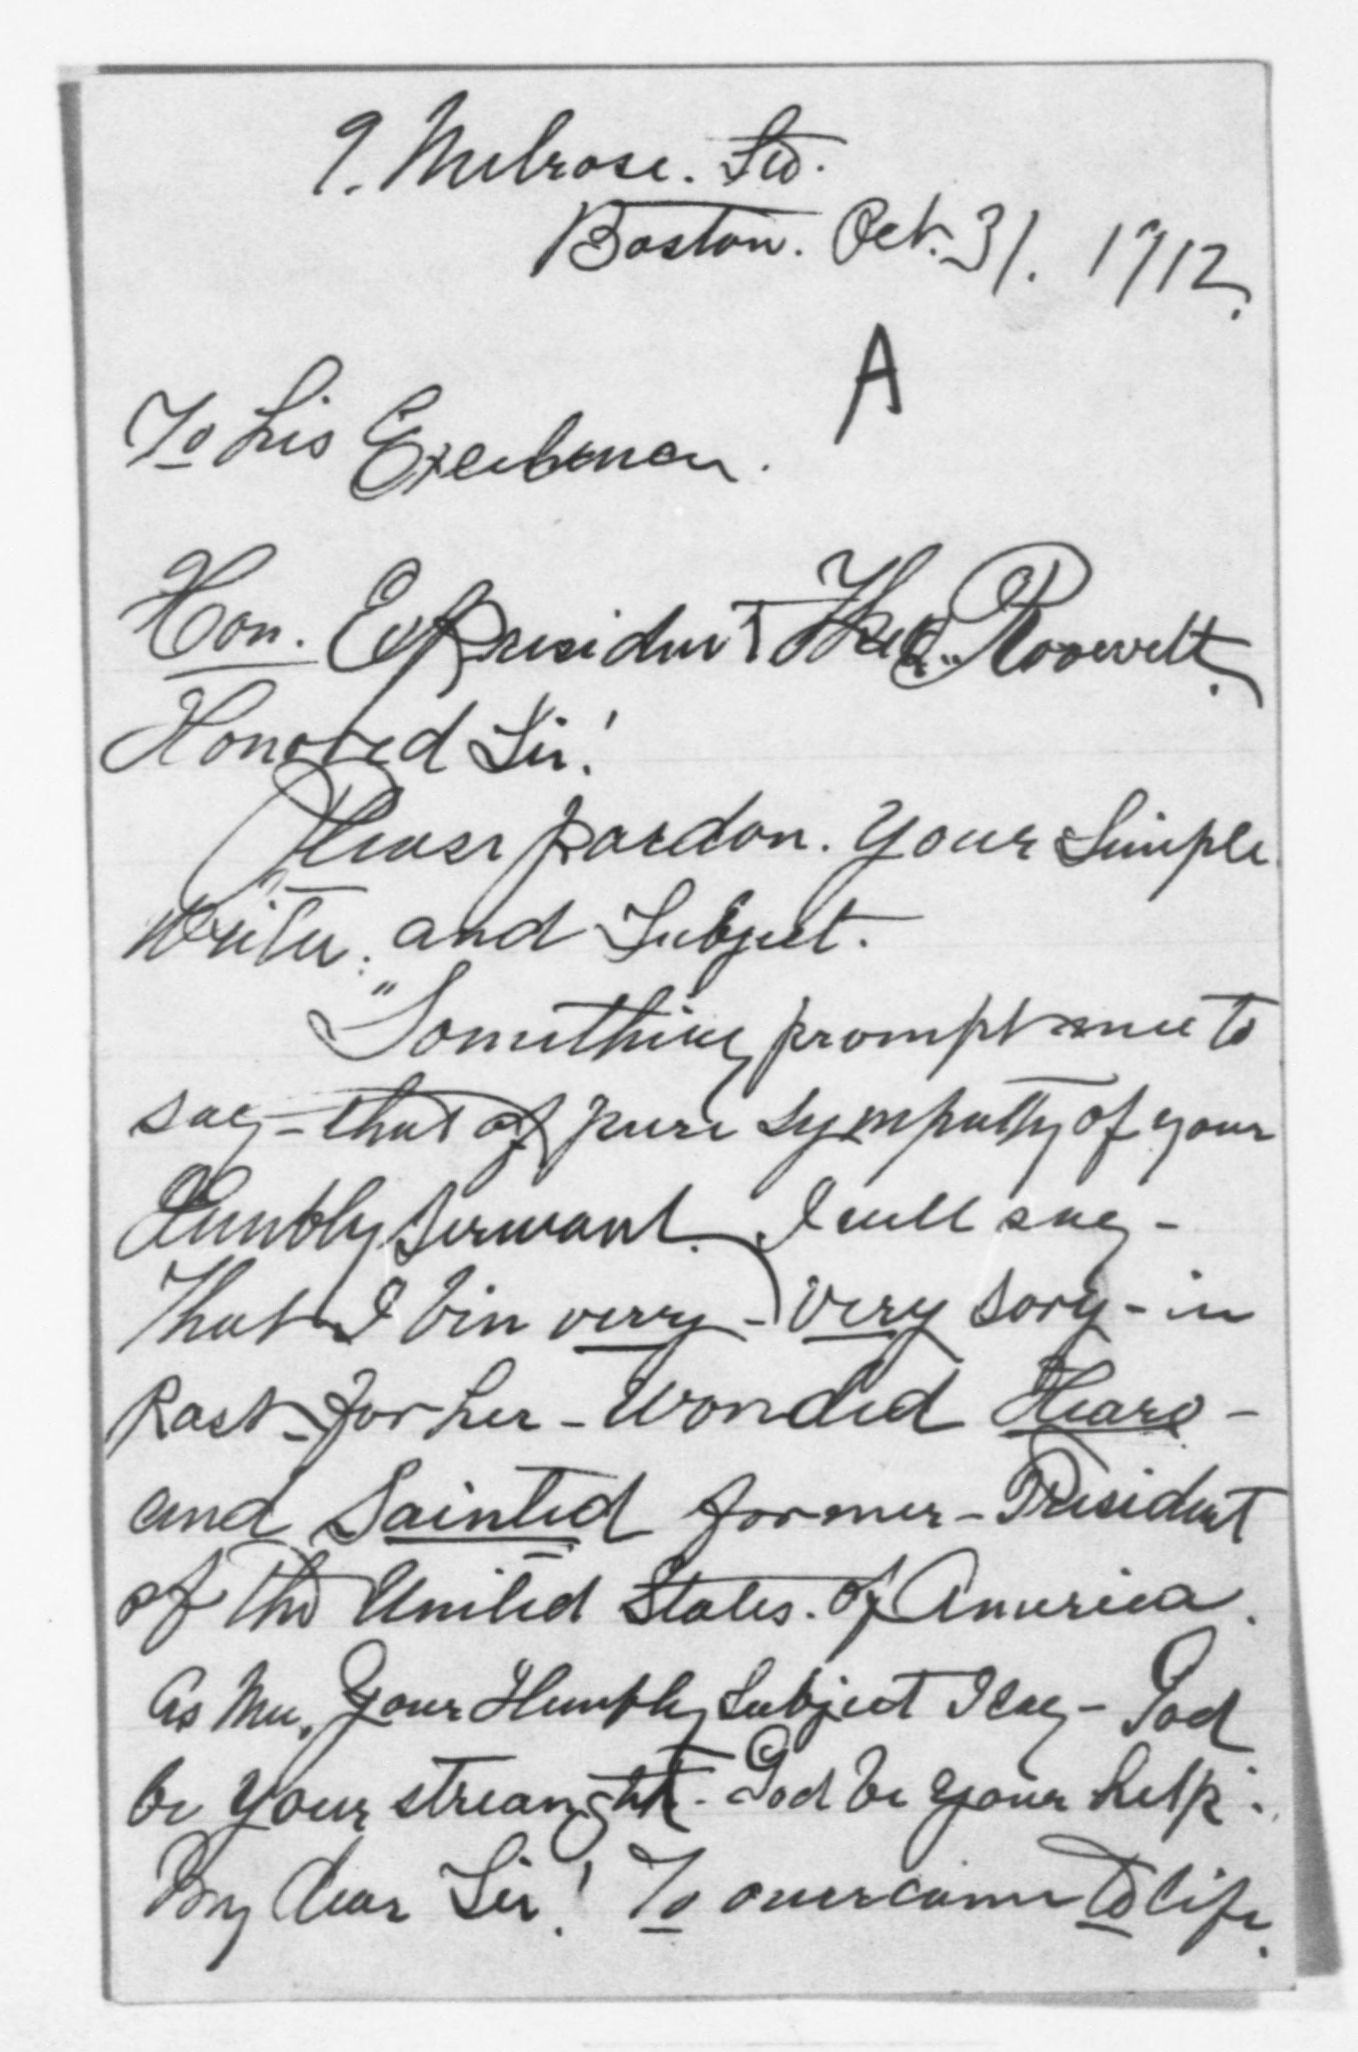 9. Melrose. St.
Boston. Oct. 31. 1912.
A
To his
Hon. Ex President Theo. Roosevelt.
Honored Sir!
Please pardon. Your Simple
writer. and Subject.
"Something prompt mee to
say – that of pure sympathy of your
Humbly Servant. I will say –
That I bin verry – very sory – in
Past – for her – Wonded Hearo –
and Sainted former – President
of the United States. of America.
As Mee, Your Humbly Subject I say – God
be your streanghth. God be your help.
My dear Sir! To overcome to life.